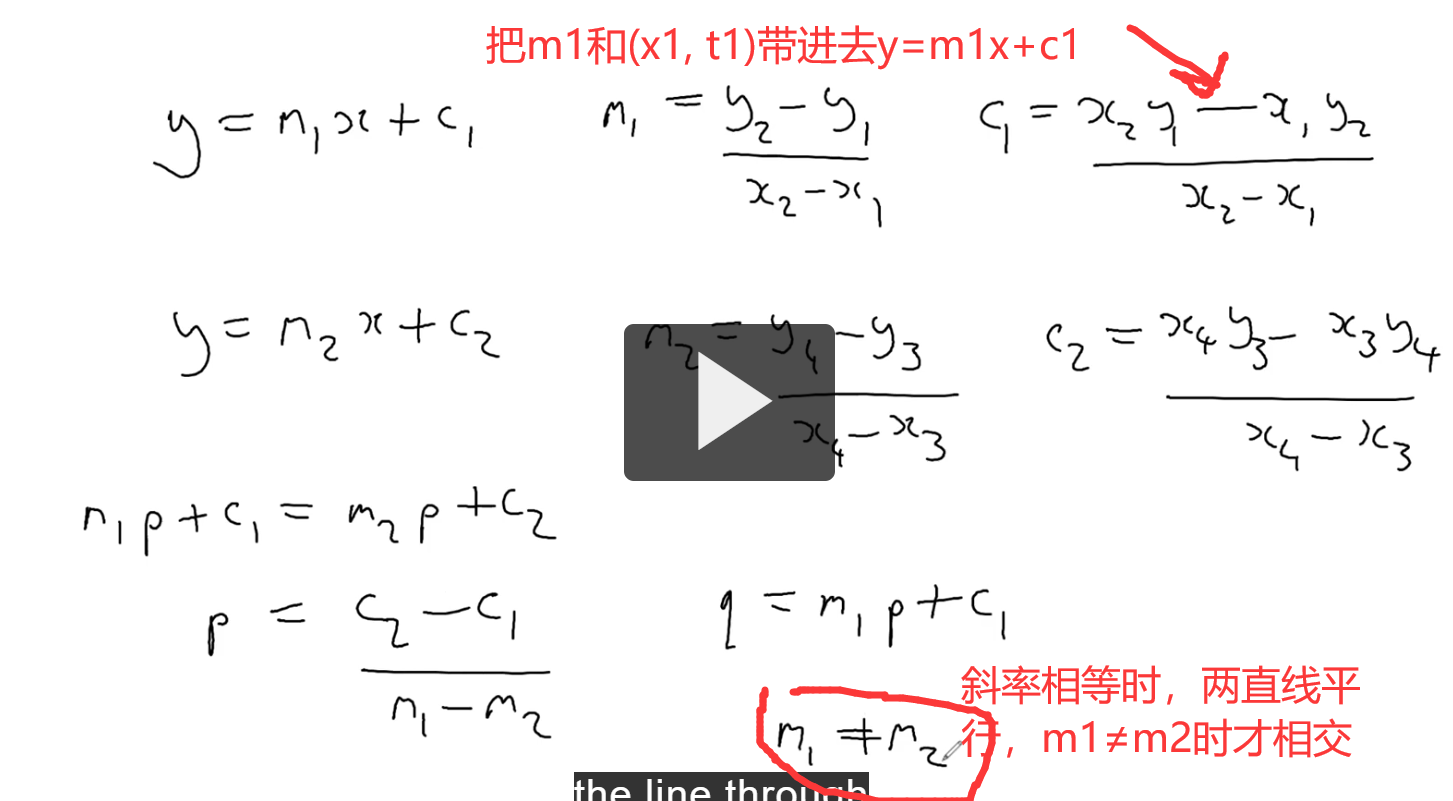 把m1和(x1, t1)带进去y=m1x+c1
y = m₁x + c₁    m₁ = (y₂ − y₁)/(x₂ − x₁)    c₁ = (x₂y₁ − x₁y₂)/(x₂ − x₁)
y = m₂x + c₂    m₂ = (y₄ − y₃)/(x₄ − x₃)    c₂ = (x₄y₃ − x₃y₄)/(x₄ − x₃)
m₁p + c₁ = m₂p + c₂
p = (c₂ − c₁)/(m₁ − m₂)    q = m₁p + c₁
斜率相等时，两直线平
m₁ ≠ m₂    行，m1≠m2时才相交
the line through